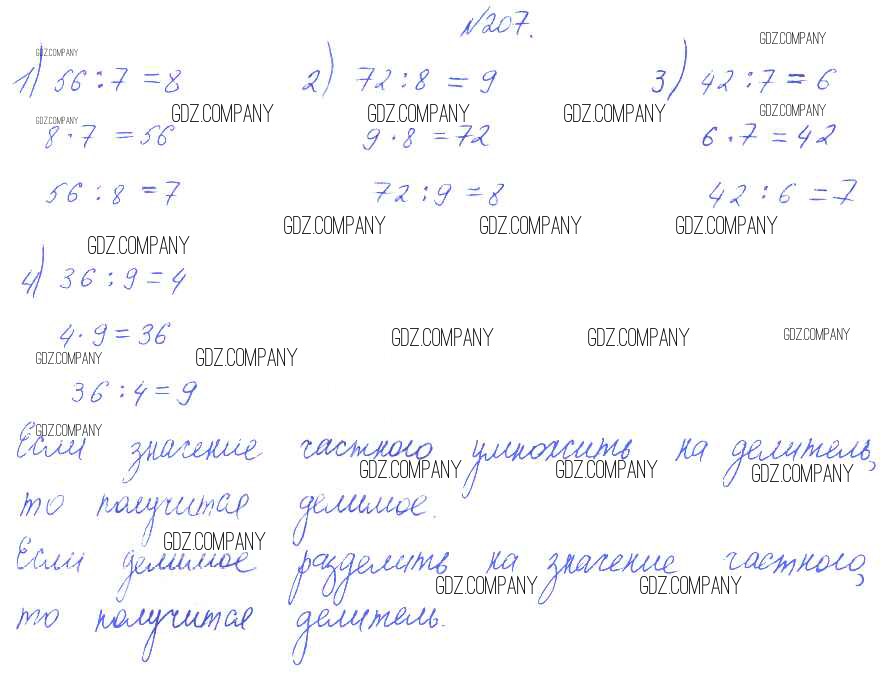 №207.
1) 56:7=8 2) 72:8=9 3) 42:7=6
8·7=56 9·8=72 6·7=42
56:8=7 72:9=8 42:6=7
4) 36:9=4
4·9=36
36:4=9
Если значение частного умножить на делитель,
то получится делимое.
Если делимое разделить на значение частного,
то получится делитель.
GDZ.COMPANY GDZ.COMPANY
GDZ.COMPANY GDZ.COMPANY GDZ.COMPANY GDZ.COMPANY GDZ.COMPANY
GDZ.COMPANY GDZ.COMPANY GDZ.COMPANY GDZ.COMPANY
GDZ.COMPANY GDZ.COMPANY GDZ.COMPANY GDZ.COMPANY GDZ.COMPANY
GDZ.COMPANY GDZ.COMPANY GDZ.COMPANY GDZ.COMPANY
GDZ.COMPANY GDZ.COMPANY GDZ.COMPANY